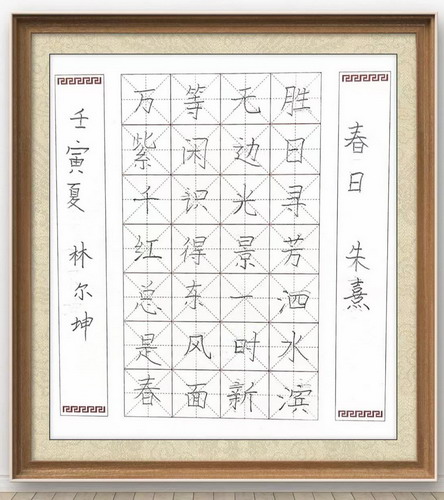 春日 朱熹
胜日寻芳泗水滨
无边光景一时新
等闲识得东风面
万紫千红总是春
壬寅夏 林尔坤